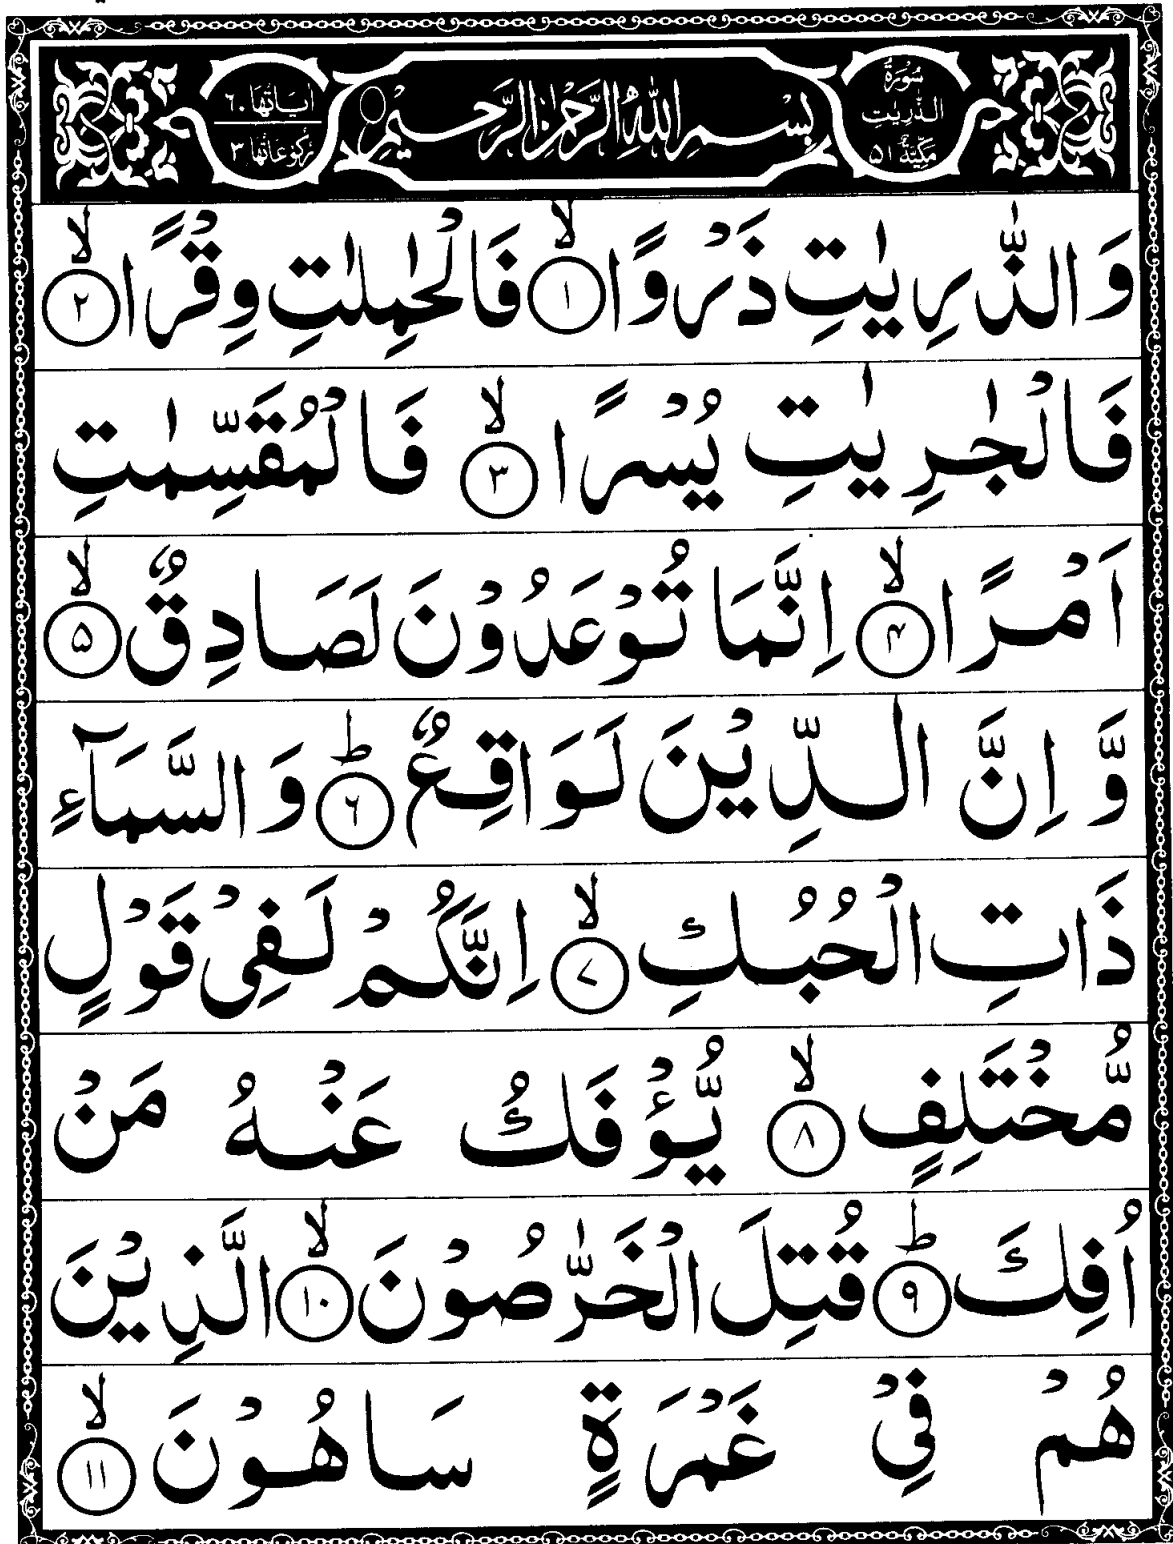 سُوْرَةُ الذّٰرِيٰتِ مَكِّيَّةٌ ٥١
بِسْمِ اللّٰهِ الرَّحْمٰنِ الرَّحِيْمِ
اٰيَاتُهَا ٦٠ رُكُوْعَاتُهَا ٣
وَالذّٰرِيٰتِ ذَرْوًا ۙ‏﴿١﴾ فَالْحٰمِلٰتِ وِقْرًا ۙ‏﴿٢﴾
فَالْجٰرِيٰتِ يُسْرًا ۙ‏﴿٣﴾ فَالْمُقَسِّمٰتِ
اَمْرًا ۙ‏﴿٤﴾ اِنَّمَا تُوْعَدُوْنَ لَصَادِقٌ ۙ‏﴿٥﴾
وَّ اِنَّ الدِّيْنَ لَوَاقِعٌ ؕ‏﴿٦﴾ وَالسَّمَآءِ
ذَاتِ الْحُبُكِ ۙ‏﴿٧﴾ اِنَّكُمْ لَفِىْ قَوْلٍ
مُّخْتَلِفٍ ۙ‏﴿٨﴾ يُّؤْفَكُ عَنْهُ مَنْ
اُفِكَ ؕ‏﴿٩﴾ قُتِلَ الْخَرّٰصُوْنَ ۙ‏﴿١٠﴾ الَّذِيْنَ
هُمْ فِىْ غَمْرَةٍ سَاهُوْنَ ۙ‏﴿١١﴾